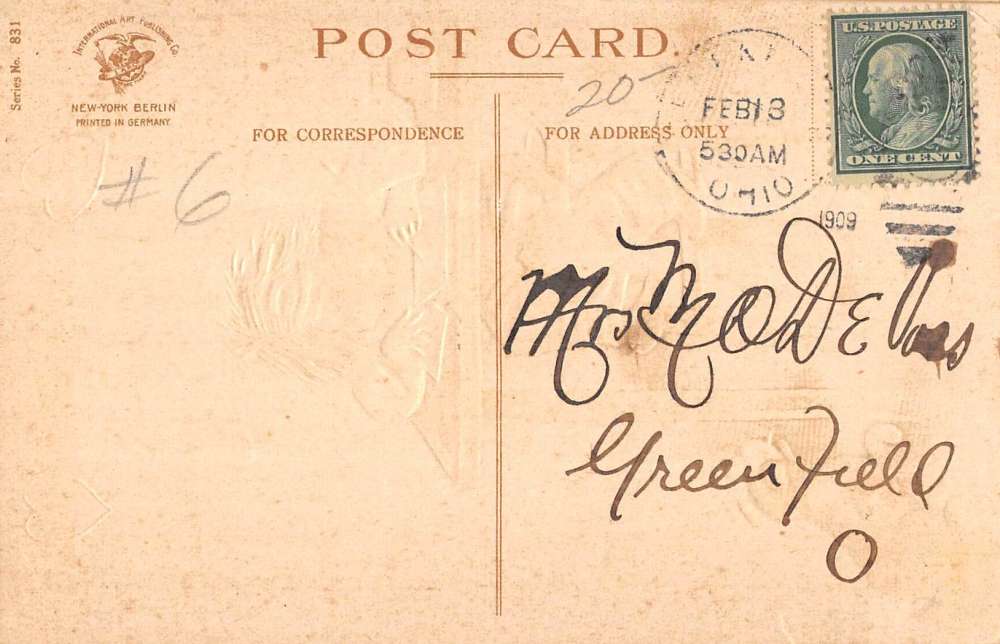 Series No. 831
INTERNATIONAL ART PUBLISHING Co.
NEW-YORK BERLIN
PRINTED IN GERMANY
POST CARD.
FOR CORRESPONDENCE
FOR ADDRESS ONLY
20-
# 6
FEB 13
530 AM
OHIO
1909
U.S. POSTAGE
ONE CENT
Mrs M O De Voss
Greenfield
O